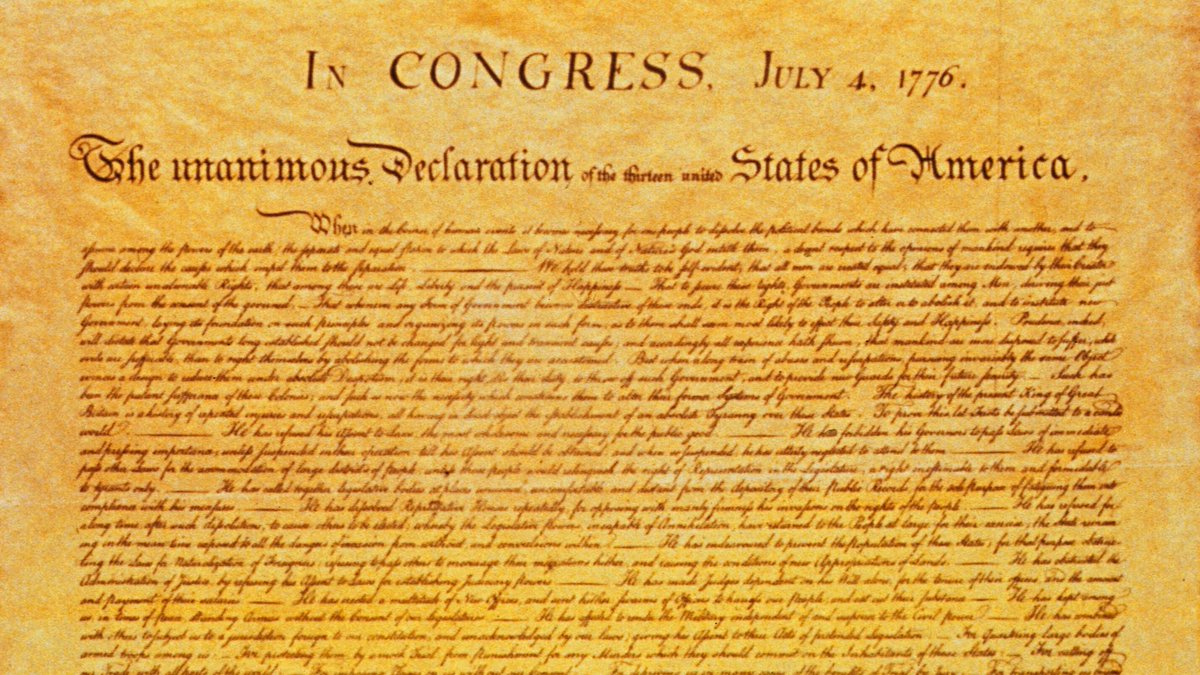 In CONGRESS, July 4, 1776.
The unanimous Declaration of the thirteen united States of America,
When in the Course of human events it becomes necessary for one people to dissolve the political bands which have connected them with another, and to
assume among the powers of the earth, the separate and equal station to which the Laws of Nature and of Nature's God entitle them, a decent respect to the opinions of mankind requires that they
should declare the causes which impel them to the separation. — We hold these truths to be self-evident, that all men are created equal, that they are endowed by their Creator
with certain unalienable Rights, that among these are Life, Liberty and the pursuit of Happiness. — That to secure these rights, Governments are instituted among Men, deriving their just
powers from the consent of the governed, — That whenever any Form of Government becomes destructive of these ends, it is the Right of the People to alter or to abolish it, and to institute new
Government, laying its foundation on such principles and organizing its powers in such form, as to them shall seem most likely to effect their Safety and Happiness. Prudence, indeed,
will dictate that Governments long established should not be changed for light and transient causes; and accordingly all experience hath shewn, that mankind are more disposed to suffer, while
evils are sufferable, than to right themselves by abolishing the forms to which they are accustomed. But when a long train of abuses and usurpations, pursuing invariably the same Object
evinces a design to reduce them under absolute Despotism, it is their right, it is their duty, to throw off such Government, and to provide new Guards for their future security. — Such has
been the patient sufferance of these Colonies; and such is now the necessity which constrains them to alter their former Systems of Government. The history of the present King of Great
Britain is a history of repeated injuries and usurpations, all having in direct object the establishment of an absolute Tyranny over these States. To prove this, let Facts be submitted to a candid
world. — He has refused his Assent to Laws, the most wholesome and necessary for the public good. — He has forbidden his Governors to pass Laws of immediate
and pressing importance, unless suspended in their operation till his Assent should be obtained; and when so suspended, he has utterly neglected to attend to them. — He has refused to
pass other Laws for the accommodation of large districts of people, unless those people would relinquish the right of Representation in the Legislature, a right inestimable to them and formidable
to tyrants only. — He has called together legislative bodies at places unusual, uncomfortable, and distant from the depository of their Public Records, for the sole purpose of fatiguing them into
compliance with his measures. — He has dissolved Representative Houses repeatedly, for opposing with manly firmness his invasions on the rights of the people. — He has refused for
a long time, after such dissolutions, to cause others to be elected; whereby the Legislative powers, incapable of Annihilation, have returned to the People at large for their exercise; the State remain-
ing in the mean time exposed to all the dangers of invasion from without, and convulsions within. — He has endeavoured to prevent the population of these States; for that purpose obstruc-
ting the Laws for Naturalization of Foreigners; refusing to pass others to encourage their migrations hither, and raising the conditions of new Appropriations of Lands. — He has obstructed the
Administration of Justice, by refusing his Assent to Laws for establishing Judiciary powers. — He has made Judges dependent on his Will alone, for the tenure of their offices, and the amount
and payment of their salaries. — He has erected a multitude of New Offices, and sent hither swarms of Officers to harrass our People, and eat out their substance. — He has kept among
us, in times of peace, Standing Armies without the Consent of our legislatures. — He has affected to render the Military independent of and superior to the Civil power. — He has combined
with others to subject us to a jurisdiction foreign to our constitution, and unacknowledged by our laws; giving his Assent to their Acts of pretended Legislation: — For Quartering large bodies of
armed troops among us: — For protecting them, by a mock Trial, from punishment for any Murders which they should commit on the Inhabitants of these States: — For cutting off
our Trade with all parts of the world: — For imposing Taxes on us without our Consent: